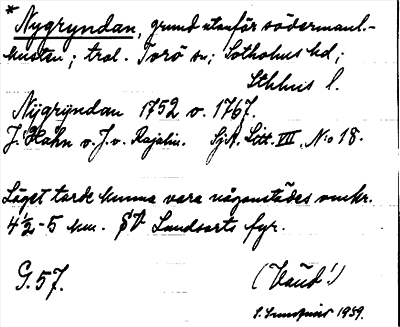 * Nygryndan, grund utanför södermanl.-
kusten; trol. Torö sn; Sotholms hd;
Sthlms l.
Nÿgrÿndan 1752 o. 1767.
J. Hahn o. J. v. Rajalin. SjA. Litt. VII, N:o 18.
Läget torde kunna vara någonstädes omkr.
4½-5 km. SV Landsorts fyr.
G. 57.
1939.